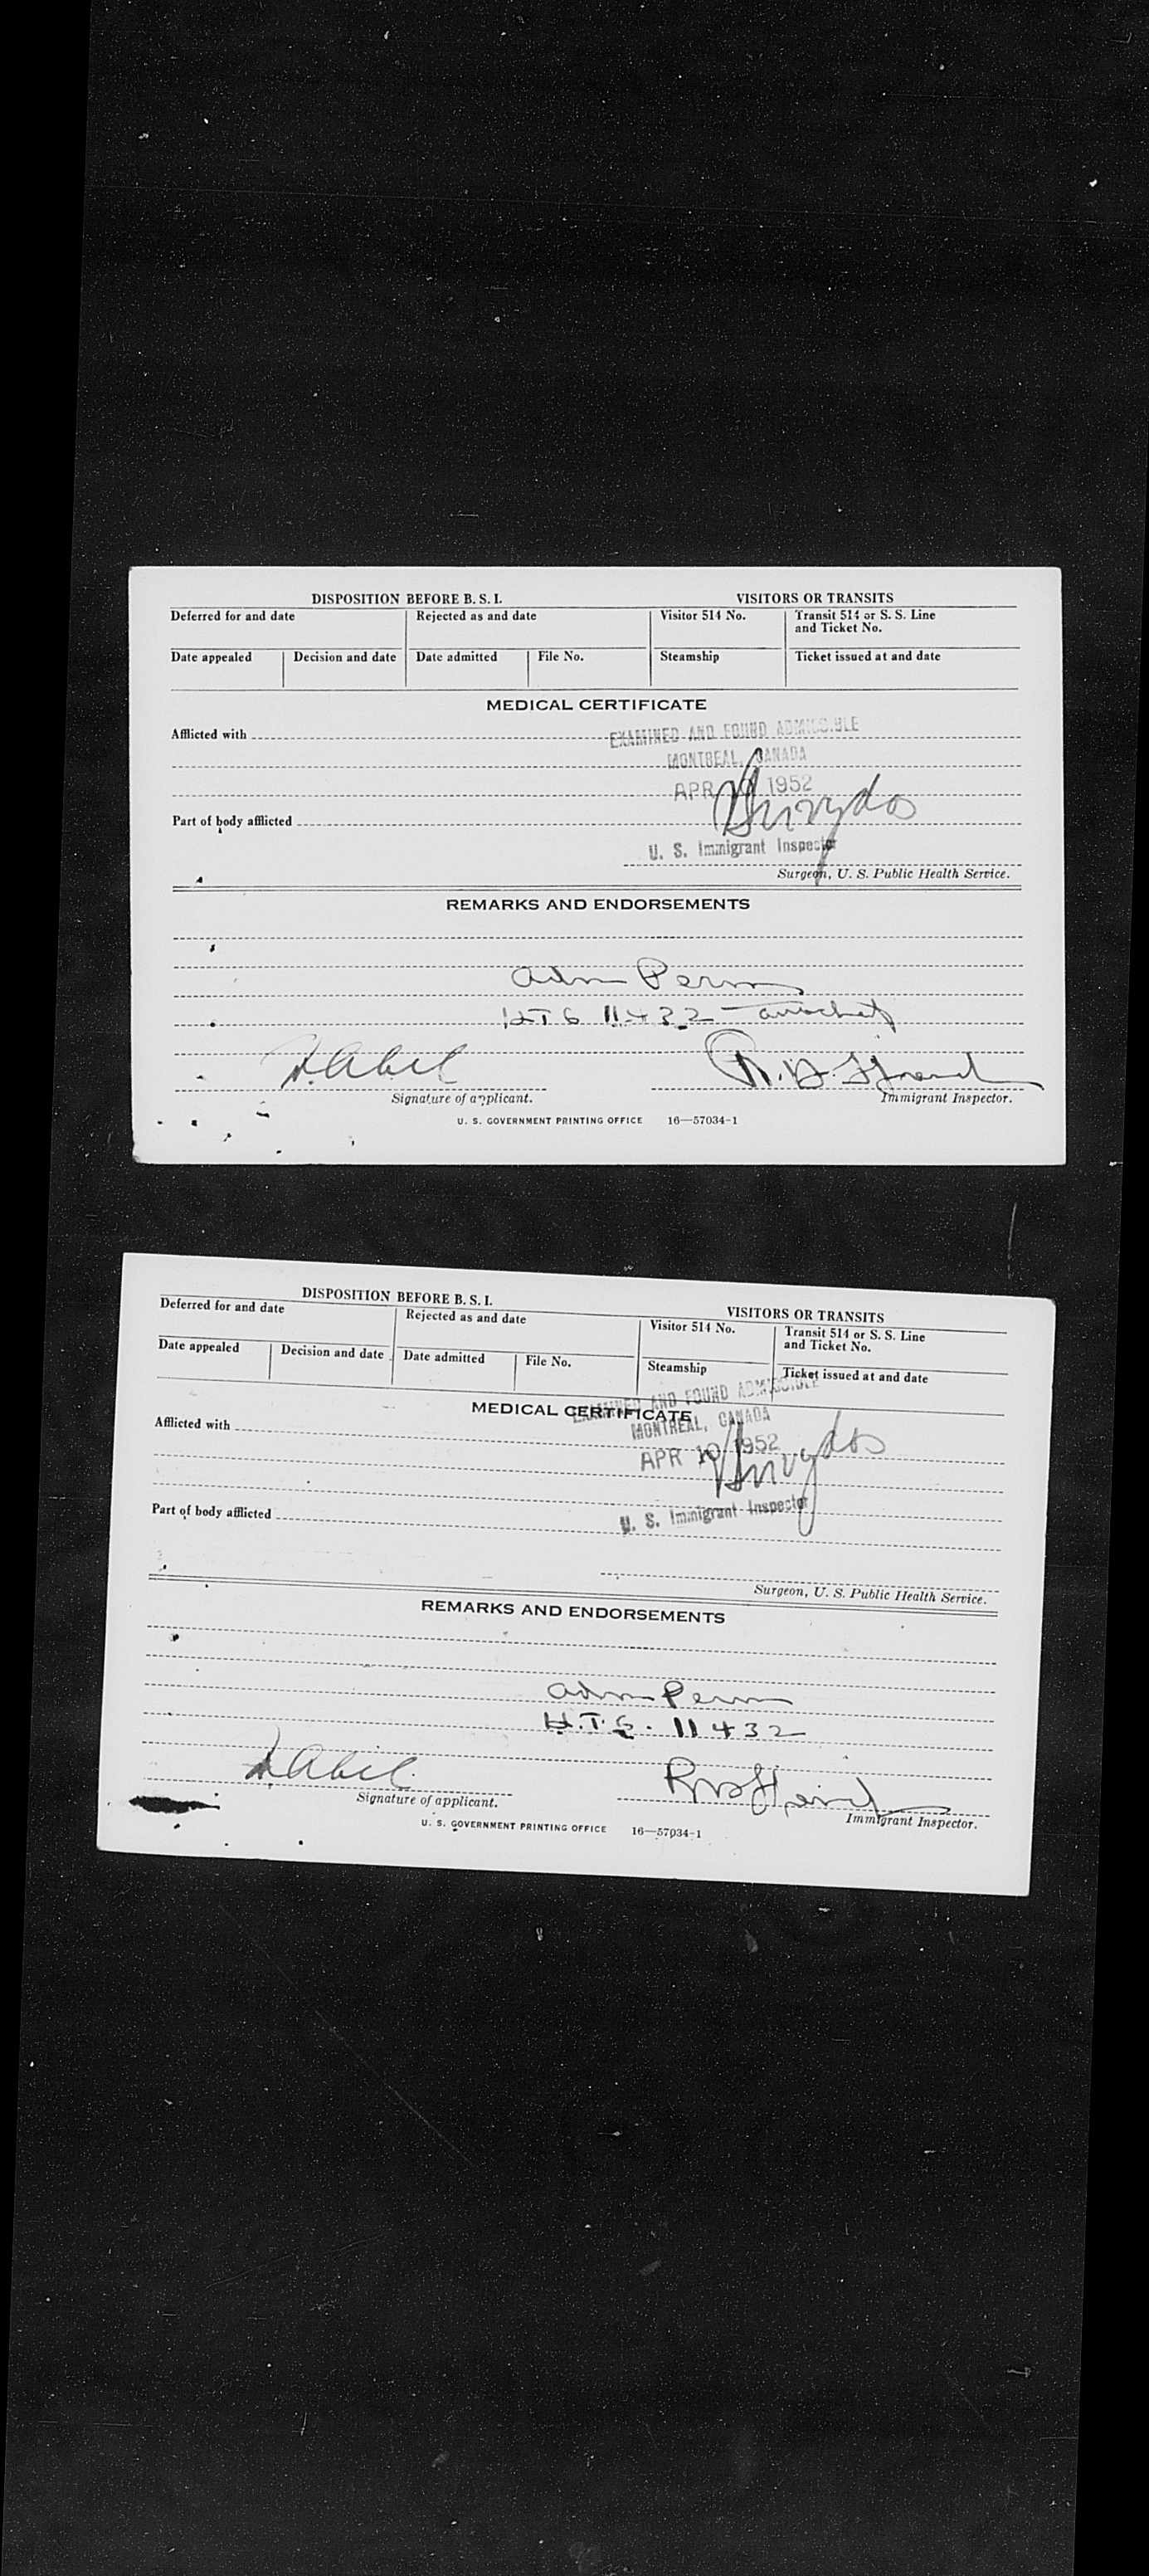 DISPOSITION BEFORE B. S. I.
VISITORS OR TRANSITS
Deferred for and date
Rejected as and date
Visitor 514 No.
Transit 514 or S. S. Line
and Ticket No.
Date appealed
Decision and date
Date admitted
File No.
Steamship
Ticket issued at and date
MEDICAL CERTIFICATE
Afflicted with
EXAMINED AND FOUND ADMISSIBLE
MONTREAL, CANADA
APR 10 1952
Part of body afflicted
U. S. Immigrant Inspector
Surgeon, U. S. Public Health Service.
REMARKS AND ENDORSEMENTS
Adm Perm
HTG 11432
Signature of applicant.
Immigrant Inspector.
U. S. GOVERNMENT PRINTING OFFICE 16—57034-1
DISPOSITION BEFORE B. S. I.
VISITORS OR TRANSITS
Deferred for and date
Rejected as and date
Visitor 514 No.
Transit 514 or S. S. Line
and Ticket No.
Date appealed
Decision and date
Date admitted
File No.
Steamship
Ticket issued at and date
EXAMINED AND FOUND ADMISSIBLE
MEDICAL CERTIFICATE
MONTREAL, CANADA
Afflicted with
APR 10 1952
Part of body afflicted
U. S. Immigrant Inspector
Surgeon, U. S. Public Health Service.
REMARKS AND ENDORSEMENTS
Adm Perm
H.T.G. 11432
Signature of applicant.
Immigrant Inspector.
U. S. GOVERNMENT PRINTING OFFICE 16—57034-1